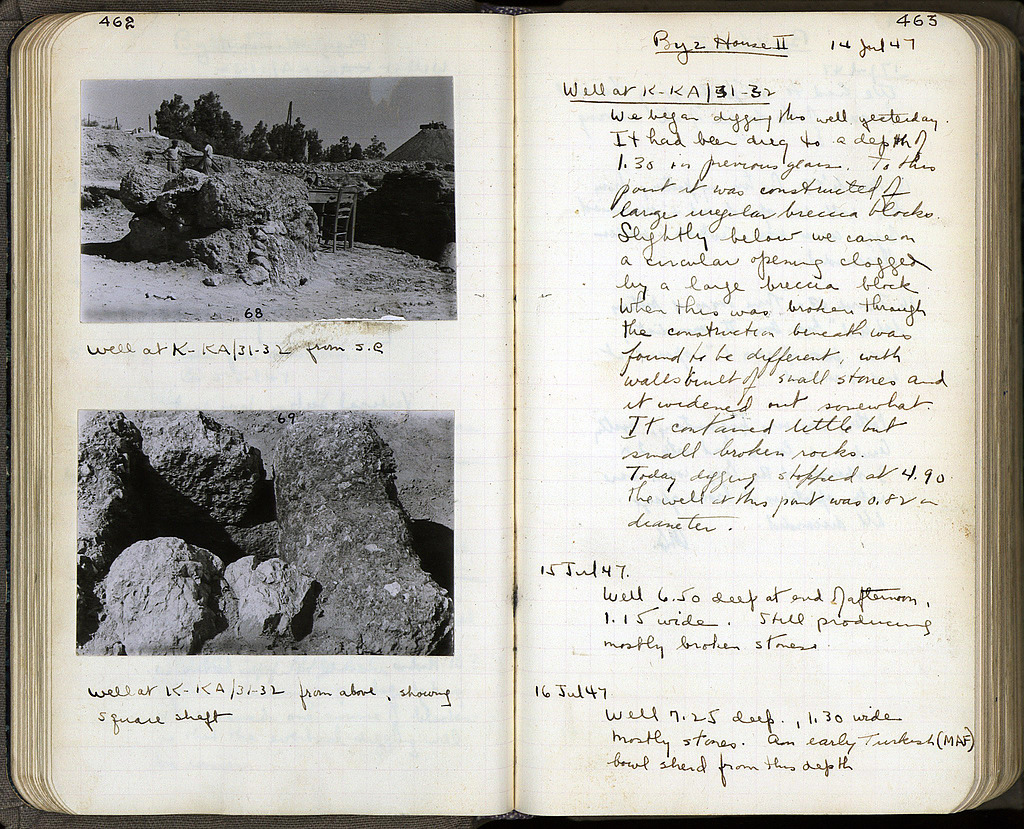 462
68
Well at K-KA/31-32 from S.E
69
Well at K-KA/31-32 from above, showing
square shaft
463
Byz House II 14 Jul 47
Well at K-KA/31-32
We began digging this well yesterday.
It had been dug to a depth of
1.30 in previous years. To this
point it was constructed of
large irregular breccia blocks.
Slightly below we came on
a circular opening clogged
by a large breccia block
When this was broken through
the construction beneath was
found to be different, with
walls built of small stones and
it widened out somewhat.
It contained little but
small broken rocks.
Today digging stopped at 4.90.
The well at this point was 0.82 in
diameter.
15 Jul 47.
Well 6.50 deep at end of afternoon,
1.15 wide. Still producing
mostly broken stones.
16 Jul 47
Well 7.25 deep., 1.30 wide
Mostly stones. An early Turkish (MAF)
bowl sherd from this depth